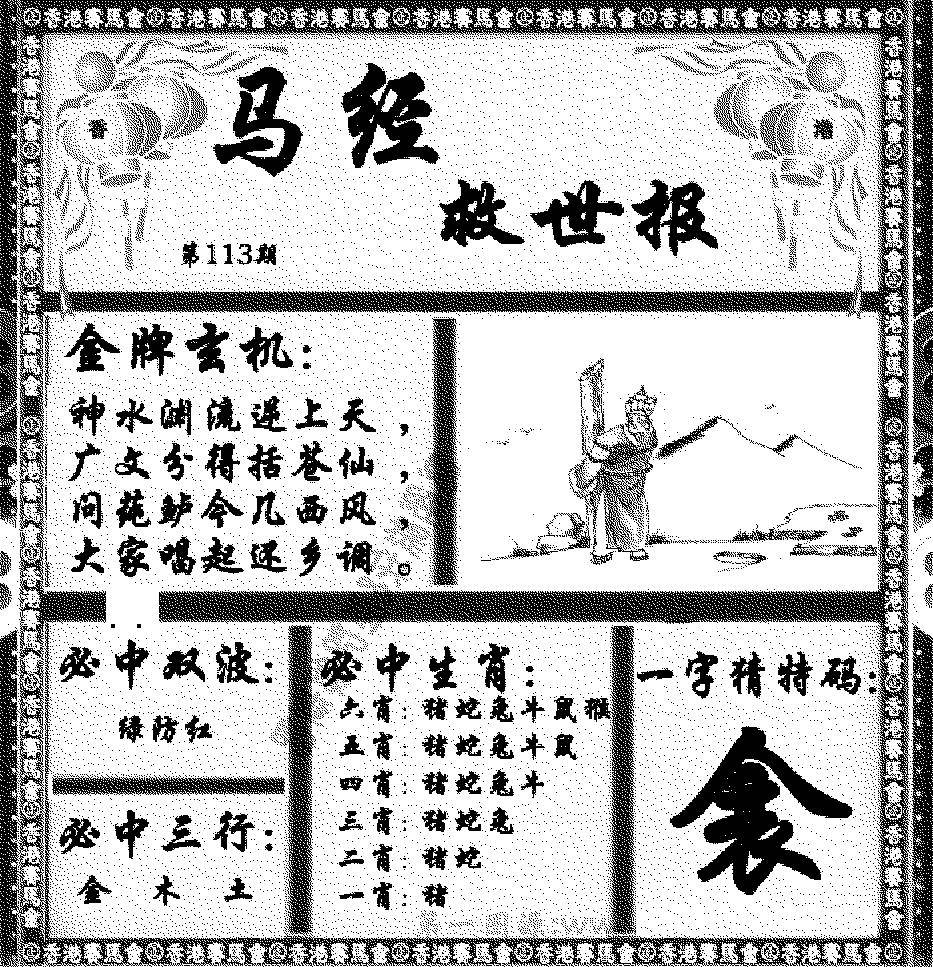 香港赛馬會 香港赛馬會 香港赛馬會 香港赛馬會 香港赛馬會 香港赛馬會 香港赛馬會
香
港
马经
救世报
第113期
金牌玄机:
神水渊流逆上天,
广文分得括苍仙,
问莼鲈今几西风,
大家唱起还乡调。
必中双波:
绿防红
必中三行:
金 木 土
必中生肖:
六肖:猪蛇兔牛鼠猴
五肖:猪蛇兔牛鼠
四肖:猪蛇兔牛
三肖:猪蛇兔
二肖:猪蛇
一肖:猪
一字猜特码:
香港赛馬會 香港赛馬會 香港赛馬會 香港赛馬會 香港赛馬會 香港赛馬會 香港赛馬會